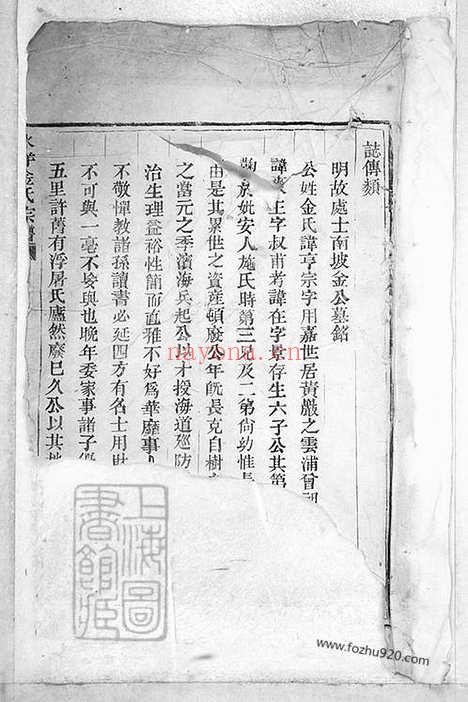 誌傳類
明故處士南坡金公墓銘
公姓金氏諱亨宗字用嘉世居黃巖之雲浦曾祖
諱 士字叔甫考諱在字景存生六子公其第
於妣安人施氏時第三兄及二弟尙幼惟長
由是其累世之資產頓廢公年旣長克自樹
之當元之季濱海兵起公以才授海道廵防
治生理益裕性簡而直雅不好爲華靡事
不敬憚敎諸孫讀書必延四方有名士用財
不可與一毫不妄與也晚年委家事諸子
五里許舊有浮屠氏廬然廢已久公以其地
氏宗譜
上海圖書館
nayona.cn
www.fozhu920.com